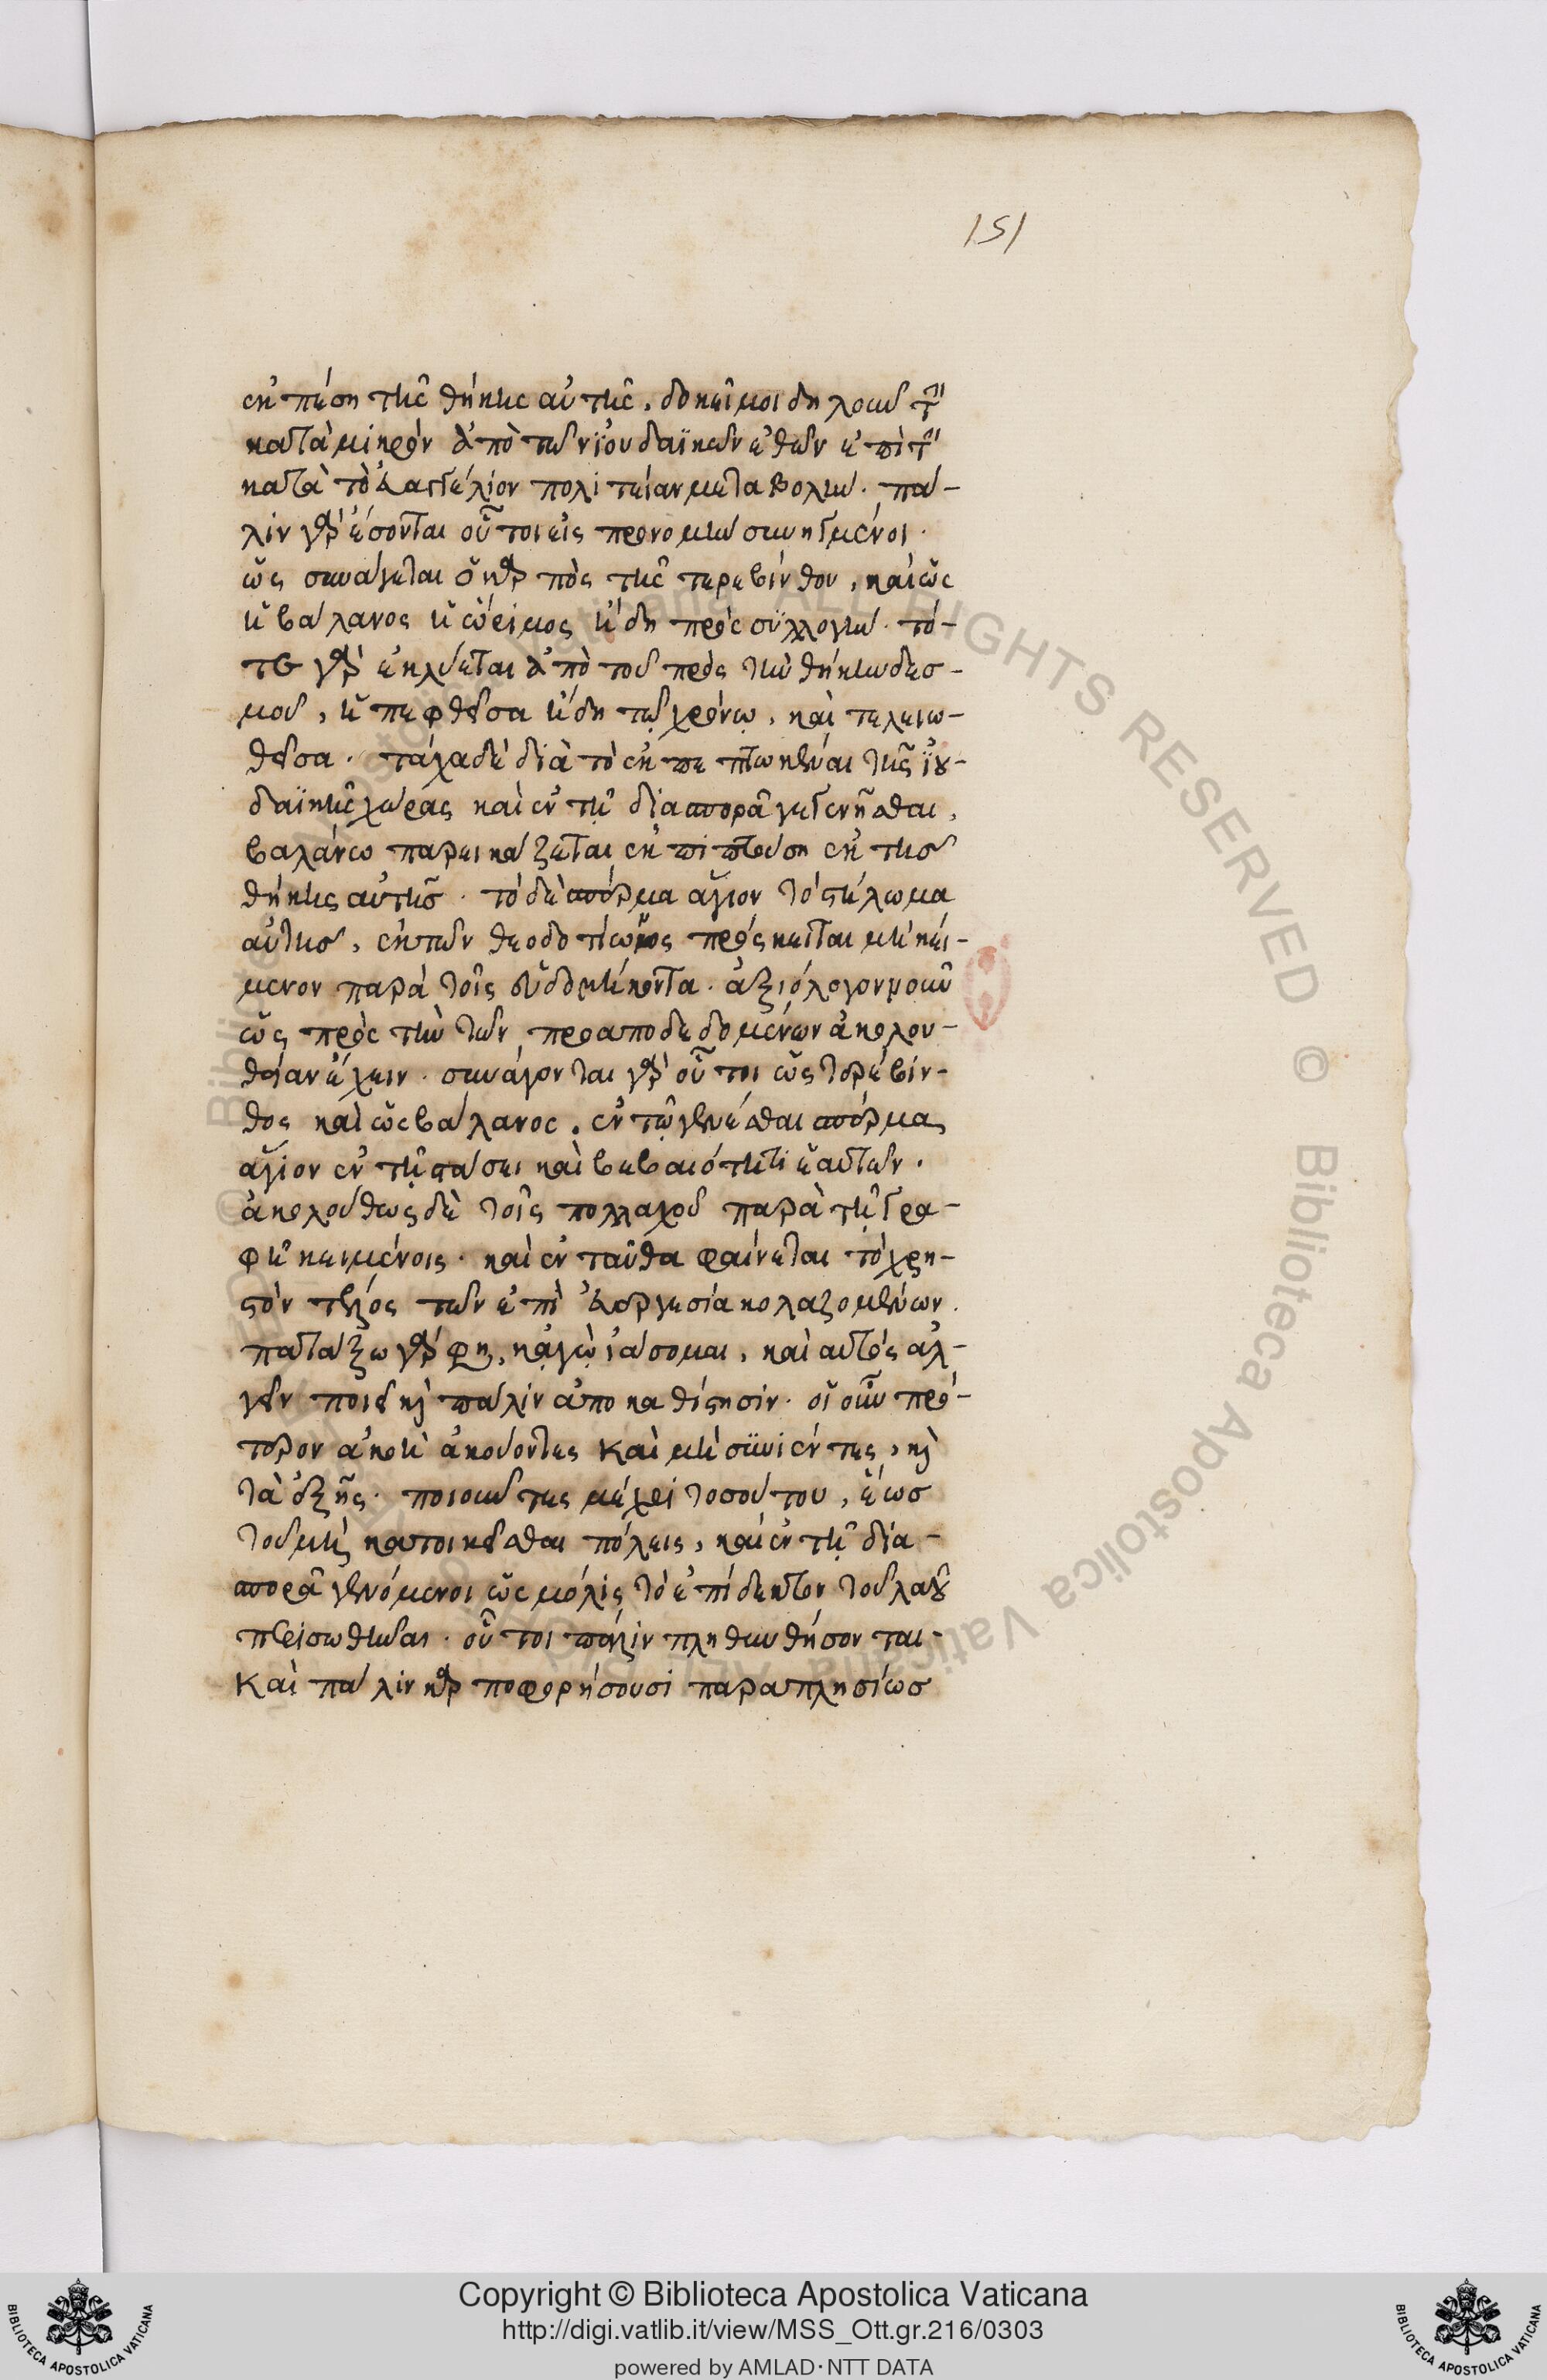 151
ἐκπέσῃ τῆς θήκης αὐτῆς, δοκεῖ μοι δηλοῦν τὴν
κατὰ μικρὸν ἀπὸ τῶν ϊουδαϊκῶν ἐθῶν ἐπὶ τὴν
κατὰ τὸ εὐαγγέλιον πολιτείαν μεταβολήν. πά-
λιν γὰρ ἔσονται οὗτοι εἰς προνομὴν συνηγμένοι.
ὡς συνάγεται ὁ καρπὸς τῆς τερεβίνθου, καὶ ὡς
ἡ βάλανος ἡ ὥριμος ἤδη πρὸς συλλογήν. τό-
τε γὰρ ἐκλύεται ἀπὸ τοῦ πρὸς τὴν θήκην δεσ-
μοῦ, ἡ πεφθεῖσα ἤδη τῷ χρόνῳ, καὶ τελειω-
θεῖσα. τάχα δὲ διὰ τὸ ἐκπεπτωκέναι τῆς ϊου-
δαϊκῆς χώρας καὶ ἐν τῇ διασπορᾷ γεγενῆσθαι,
βαλάνω παρεικάζεται ἐκπιπτούσῃ ἐκ τῆς
θήκης αὐτῆς. τὸ δὲ σπέρμα ἅγιον τὸ στήλωμα
αὐτῆς, ἐκ τῶν θεοδοτίωνος πρόσκειται μὴ κεί-
μενον παρὰ τοῖς ἑβδομήκοντα. ἀξιόλογον μοῦν
ὡς πρὸς τὴν τῶν προαποδεδομένων ἀκολου-
θίαν ἔχειν. συνάγονται γὰρ οὗτοι ὡς τερέβιν-
θος καὶ ὡς βάλανος. ἐν τῷ γενέσθαι σπέρμα
ἅγιον ἐν τῇ στάσει καὶ βεβαιότητι ἑαυτῶν.
ἀκολούθως δὲ τοῖς πολλαχοῦ παρὰ τῇ γρα-
φῇ κειμένοις. καὶ ἐνταῦθα φαίνεται τὸ χρη-
στὸν τέλος τῶν ἐπὶ εὐεργεσία κολαζομένων.
πατάξω γάρ φη, κἀγὼ ἰάσομαι, καὶ αὐτὸς ἀλ-
γεῖν ποιεῖ καὶ πάλιν ἀποκαθίστησιν. οἱ οὖν πρό-
τερον ἀκοῆ ἀκούοντες καὶ μὴ συνιέντες, καὶ
τὰ ἑξῆς. ποιοῦντες μέχρι τοσούτου, ἕως
τοῦ μὴ κατοικεῖσθαι πόλεις, καὶ ἐν τῇ δια-
σπορᾷ γενόμενοι ὡς μόλις τὸ ἐπίδεκτον τοῦ λαοῦ
περισωθῆναι. οὗτοι πάλιν πληθυνθήσονται.
καὶ πάλιν καρποφορήσουσι παραπλησίως
Copyright © Biblioteca Apostolica Vaticana
http://digi.vatlib.it/view/MSS_Ott.gr.216/0303
powered by AMLAD·NTT DATA